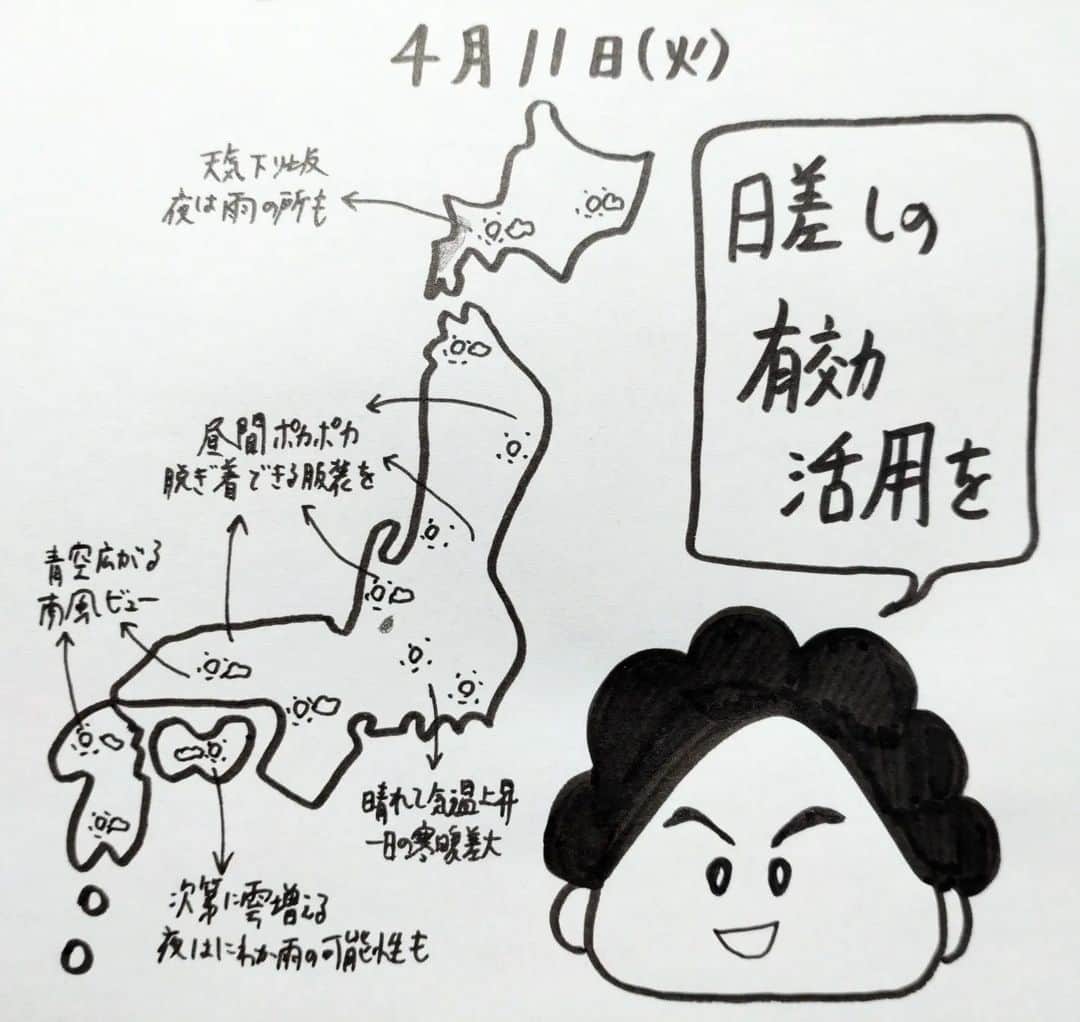 4月11日(火)
天気下り坂
夜は雨の所も
日差しの
有効
活用を
昼間ポカポカ
脱ぎ着できる服装を
青空広がる
南風ビュー
晴れて気温上昇
一日の寒暖差大
次第に雲増える
夜はにわか雨の可能性も